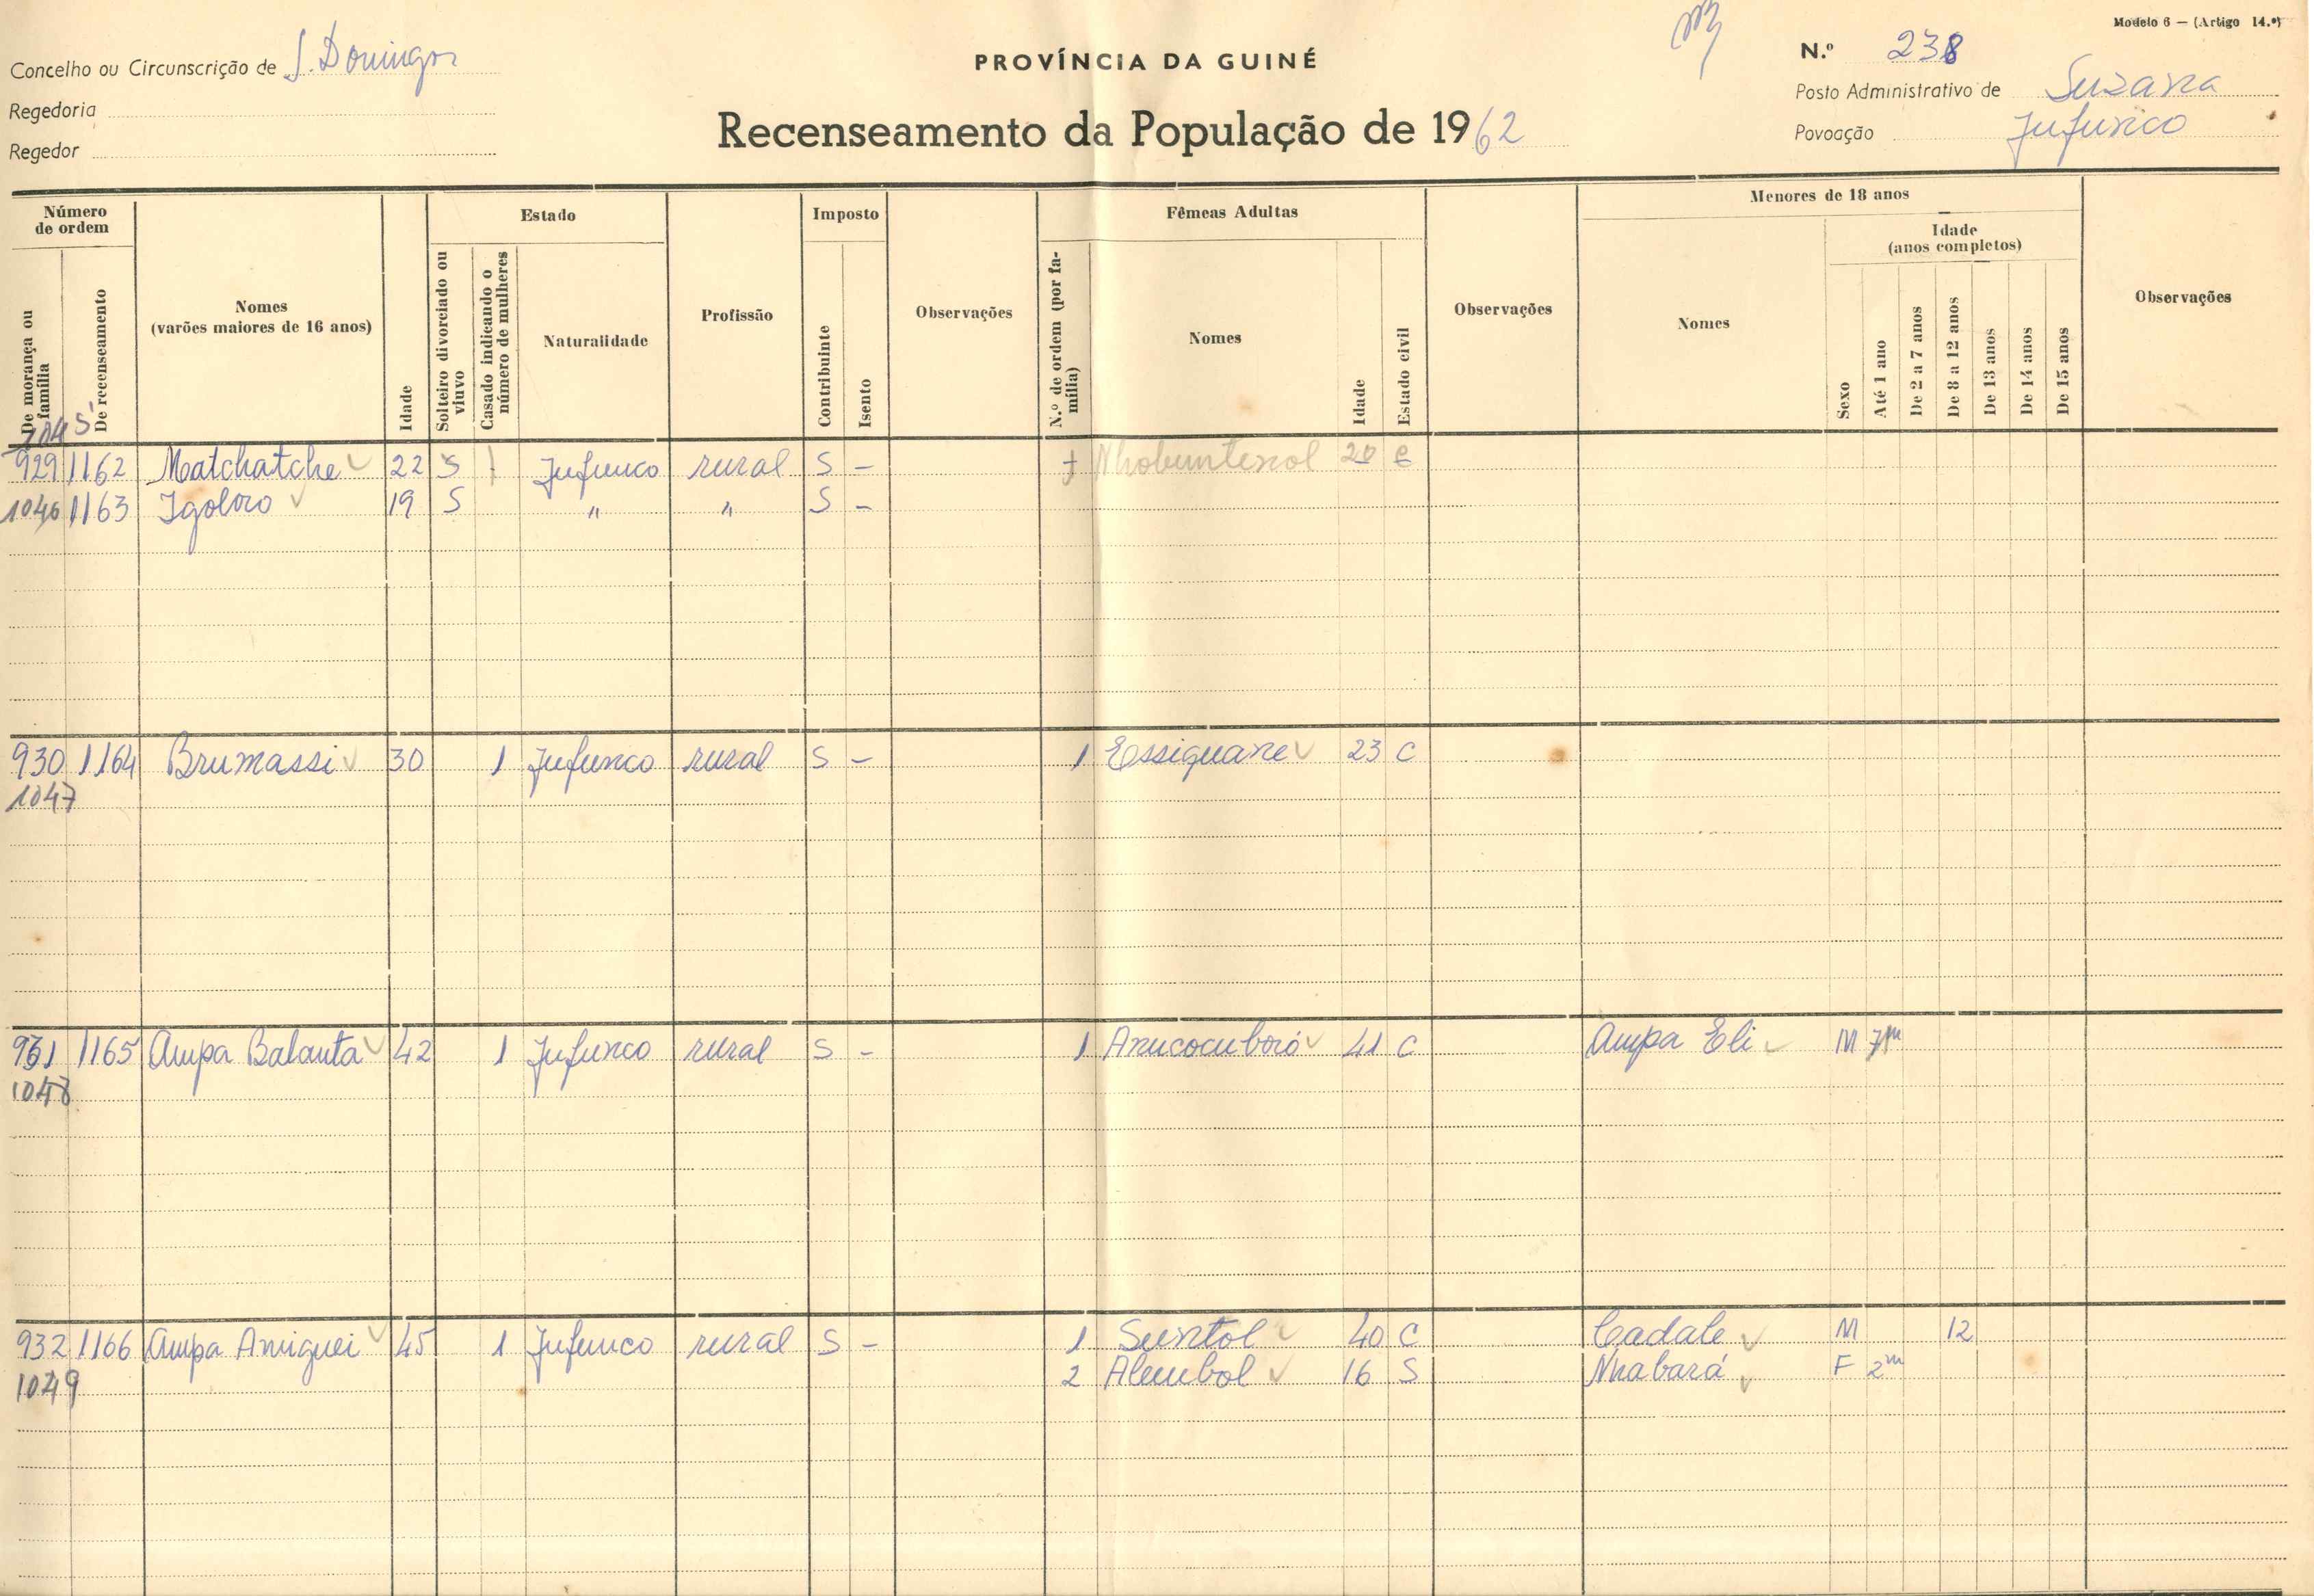 Modelo 6 — (Artigo 14.º)
Concelho ou Circunscrição de S. Domingos
PROVÍNCIA DA GUINÉ
N.º 238
Regedoria
Posto Administrativo de Suzana
Regedor
Recenseamento da População de 1962
Povoação Jufunco
Número de ordem
Estado
Imposto
Fêmeas Adultas
Menores de 18 anos
Idade (anos completos)
De morança ou família
De recenseamento
Nomes (varões maiores de 16 anos)
Idade
Solteiro divorciado ou viuvo
Casado indicando o número de mulheres
Naturalidade
Profissão
Contribuinte
Isento
Observações
N.º de ordem (por família)
Nomes
Idade
Estado civil
Observações
Nomes
Sexo
Até 1 ano
De 2 a 7 anos
De 8 a 12 anos
De 13 anos
De 14 anos
De 15 anos
Observações
1045
929 1162 Matchatche 22 S 1 Jufunco rural S - + Nhobuntenol 20 C
1046 1163 Igoloro 19 S " " S -
930 1164 Brumassi 30 1 Jufunco rural S - 1 Essiguane 23 C
1047
931 1165 Ampa Balanta 42 1 Jufunco rural S - 1 Anucocuboió 41 C Ampa Eli M 7m
1048
932 1166 Ampa Amiguei 45 1 Jufunco rural S - 1 Suntol 40 C Cadale M 12
1049 2 Alembol 16 S Nhabará F 2m